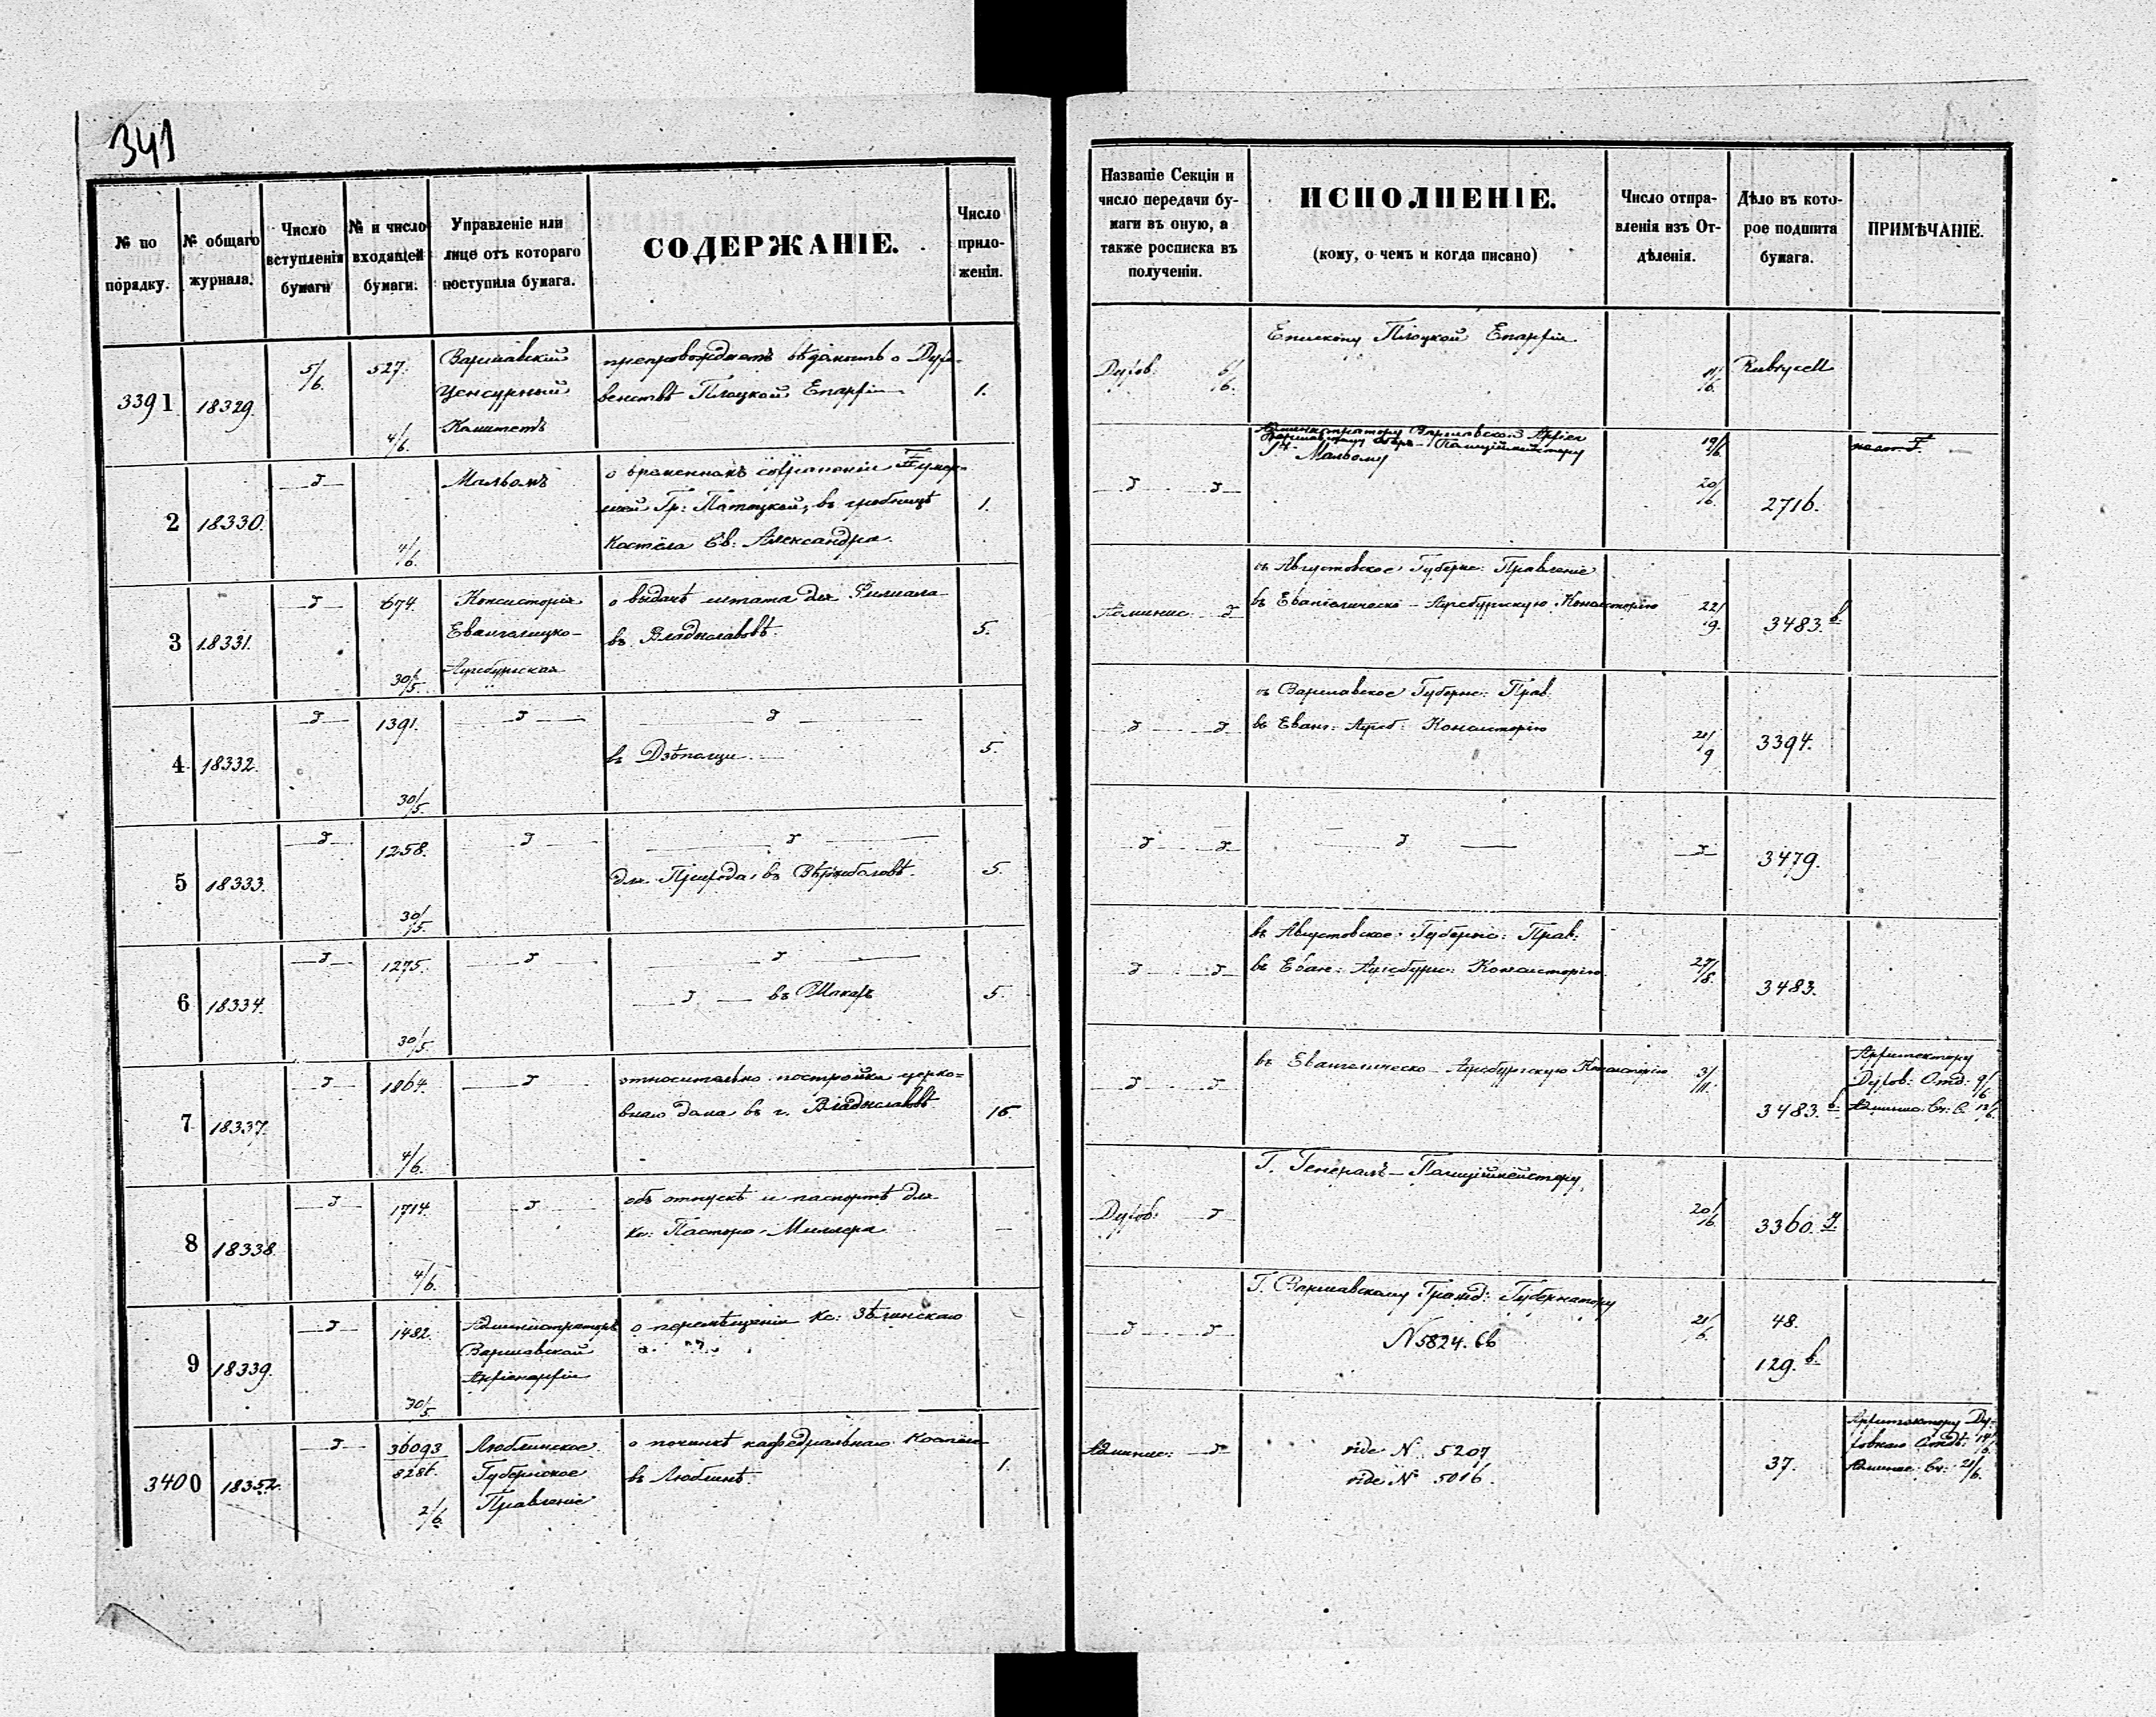 341
№ по порядку.
№ общаго журнала.
Число вступленія бумаги
№ и число входящей бумаги.
Управленіе или лице отъ котораго поступила бумага.
СОДЕРЖАНІЕ.
Число приложеній.
Названіе Секціи и число передачи бумаги въ оную, а также росписка въ полученіи.
ИСПОЛНЕНІЕ.
(кому, о чемъ и когда писано)
Число отправленія изъ Отдѣленія.
Дѣло въ которое подшита бумага.
ПРИМѢЧАНІЕ.
3391
18329.
5/6.
527.
4/6.
Варшавскій
Ценсурный
Комитетъ
препровождаетъ вѣдомость о Духо-
венствѣ Плоцкой Епархіи
1.
Духов. 6/6.
Епископу Плоцкой Епархіи
11/6.
Rubrycell
2
18330.
4/6.
Мальомъ
Гр: Потоцкой, въ гробницѣ
Костела Св: Александра.
1.
Мальому
19/6
20/6.
2716.
3
18331.
674.
30/5.
Консисторія
Евангелицко-
Аугсбургская
о выдачѣ штата для Филиала
въ Владиславовѣ.
5.
Админис.
въ Августовское Губерн: Правленіе
въ Евангелическо-Аугсбургскую Консисторію
22/9.
3483.в.
4
18332.
1391.
30/5.
5.
въ Варшавское Губерн: Прав.
въ Еванг: Аугсб: Консисторію
21/9
3394.
5
18333.
1258.
30/5.
для Прихода, въ Вержболовѣ.
5.
3479.
6
18334.
1275.
30/5.
въ Шакахъ
5.
въ Августовское Губерн: Прав:
въ Еван: Аугсбург: Консисторію.
27/8.
3483.
7
18337.
1864.
4/6.
относительно постройки церко=
внаго дома въ г. Владиславовѣ
16.
въ Евангелическо-Аугсбургскую Консисторію
3/11.
3483.в.
Архитектору
Духов: Отд: 9/6
8
18338.
1714.
4/6.
объ отпускѣ и паспортѣ для
кс: Пастора Миллера
—
Духов:
Г. Генералъ-Полиціймейстеру,
20/6.
3360.
9
18339.
1482.
30/5.
Администраторъ
Варшавской
Архіепархіи
о перемѣщеніи Кс:
Г. Варшавскому Гражд: Губернатору
N 5824. 66
21/6.
48.
129.в.
3400
18352.
36093
8286.
2/6.
Люблинское
Губернское
Правленіе
о починкѣ кафедральнаго Костела
въ Люблинѣ.
1.
Админис:
vide N. 5207
vide N. 5016.
37.
Архитектору Ду-
ховнаго Отдѣ: 14/6